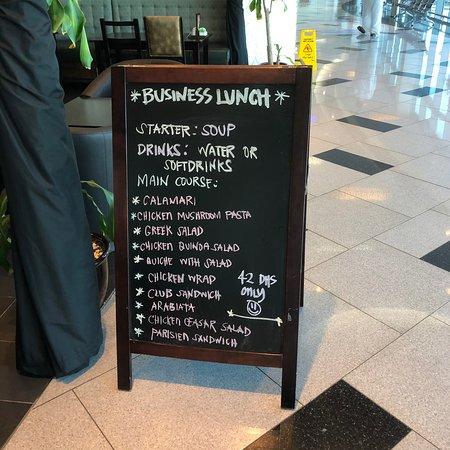 *BUSINESS LUNCH*
STARTER: SOUP
DRINKS: WATER OR
SOFTDRINKS
MAIN COURSE:
* CALAMARI
* CHICKEN MUSHROOM PASTA
* GREEK SALAD
* CHICKEN QUINOA SALAD
* QUICHE WITH SALAD
* CHICKEN WRAP
* CLUB SANDWICH
* ARABIATA
* CHICKEN CEASAR SALAD
* PARISIEN SANDWICH
42 DHS
ONLY